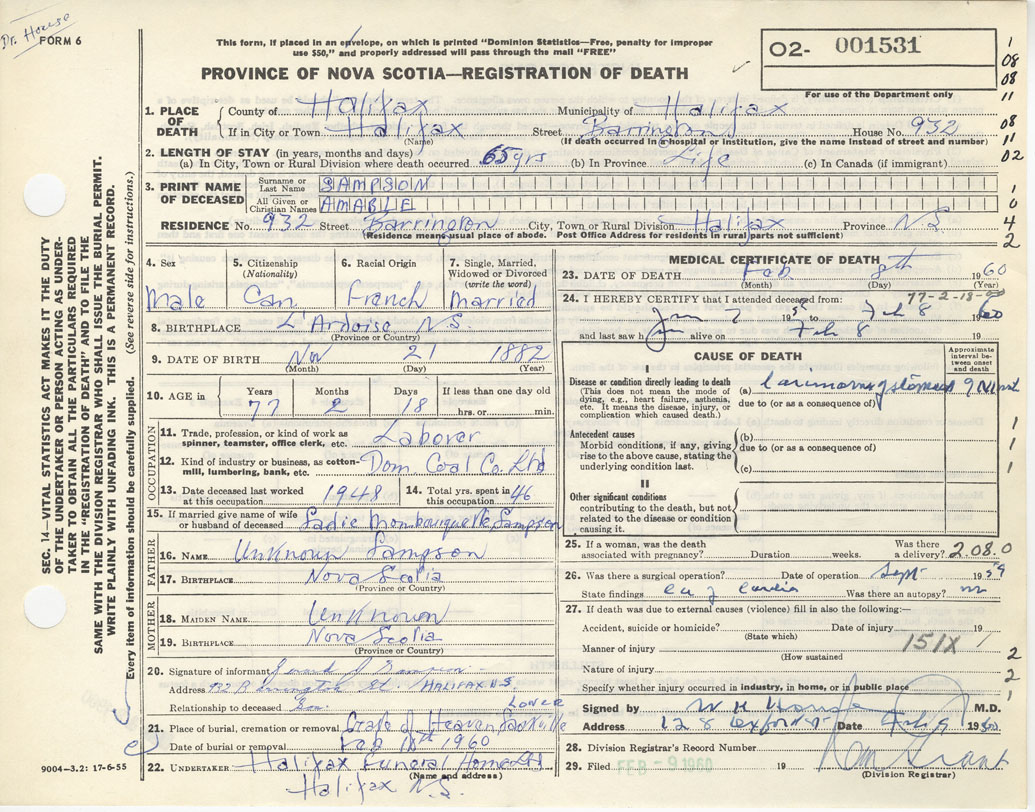 Dr. House
FORM 6
This form, if placed in an envelope, on which is printed "Dominion Statistics—Free, penalty for improper
use $50," and properly addressed will pass through the mail "FREE"
PROVINCE OF NOVA SCOTIA—REGISTRATION OF DEATH
O2- 001531
For use of the Department only
1. PLACE OF DEATH
County of Halifax Municipality of Halifax
If in City or Town Halifax Street Barrington House No. 932
(Name) (If death occurred in a hospital or institution, give the name instead of street and number)
2. LENGTH OF STAY (in years, months and days)
(a) In City, Town or Rural Division where death occurred 65 yrs (b) In Province Life (c) In Canada (if immigrant)
3. PRINT NAME OF DECEASED
Surname or Last Name SAMPSON
All Given or Christian Names AMABLE
RESIDENCE No. 932 Street Barrington City, Town or Rural Division Halifax Province N.S.
(Residence means usual place of abode. Post Office Address for residents in rural parts not sufficient)
4. Sex Male
5. Citizenship (Nationality) Can.
6. Racial Origin French
7. Single, Married, Widowed or Divorced (write the word) Married
8. BIRTHPLACE L'Ardoise, N.S.
(Province or Country)
9. DATE OF BIRTH Nov 21 1882
(Month) (Day) (Year)
10. AGE in Years 77 Months 2 Days 18 If less than one day old hrs. or min.
OCCUPATION
11. Trade, profession, or kind of work as spinner, teamster, office clerk, etc. Laborer
12. Kind of industry or business, as cotton-mill, lumbering, bank, etc. Dom Coal Co. Ltd
13. Date deceased last worked at this occupation 1948
14. Total yrs. spent in this occupation 46
15. If married give name of wife or husband of deceased Sadie Mombourquette Sampson
FATHER
16. NAME Unknown Sampson
17. BIRTHPLACE Nova Scotia
(Province or Country)
MOTHER
18. MAIDEN NAME Unknown
19. BIRTHPLACE Nova Scotia
(Province or Country)
20. Signature of informant
Address St. HALIFAX N.S.
Relationship to deceased Son
LOWER
21. Place of burial, cremation or removal Gate of Heaven Sackville
Date of burial or removal Feb 1960
22. UNDERTAKER Halifax Funeral Home Ltd
(Name and address)
Halifax N.S.
9004-3.2: 17-6-55
SEC. 14—VITAL STATISTICS ACT MAKES IT THE DUTY
OF THE UNDERTAKER OR PERSON ACTING AS UNDER-
TAKER TO OBTAIN ALL THE PARTICULARS REQUIRED
IN THE "REGISTRATION OF DEATH" AND TO FILE THE
SAME WITH THE DIVISION REGISTRAR WHO SHALL ISSUE THE BURIAL PERMIT.
WRITE PLAINLY WITH UNFADING INK. THIS IS A PERMANENT RECORD.
Every item of information should be carefully supplied. (See reverse side for instructions.)
MEDICAL CERTIFICATE OF DEATH
23. DATE OF DEATH Feb 8th 1960
(Month) (Day) (Year)
77-2-18
24. I HEREBY CERTIFY that I attended deceased from:
Jan 7 19 to Feb 8 1960
and last saw him alive on Feb 8 19
CAUSE OF DEATH
Approximate interval between onset and death
I
Disease or condition directly leading to death
(This does not mean the mode of dying, e.g., heart failure, asthenia, etc. It means the disease, injury, or complication which caused death.)
(a) Carcinoma of stomach 9
due to (or as a consequence of)
Antecedent causes
Morbid conditions, if any, giving rise to the above cause, stating the underlying condition last.
(b)
due to (or as a consequence of)
(c)
II
Other significant conditions
contributing to the death, but not related to the disease or condition causing it.
25. If a woman, was the death associated with pregnancy? Duration weeks. Was there a delivery? 2.08.0
26. Was there a surgical operation? Date of operation Sept 1959
State findings ca of cardia Was there an autopsy? no
27. If death was due to external causes (violence) fill in also the following:—
Accident, suicide or homicide? Date of injury 19
(State which)
Manner of injury 151X
(How sustained
Nature of injury
Specify whether injury occurred in industry, in home, or in public place
Signed by M.D.
Address 128 Oxford St Date Feb 9 1960
28. Division Registrar's Record Number
29. Filed FEB -9 1960 19
(Division Registrar)
1
08
08
11
08
11
02
1
0
4
2
1
1
1
1
2
2
1